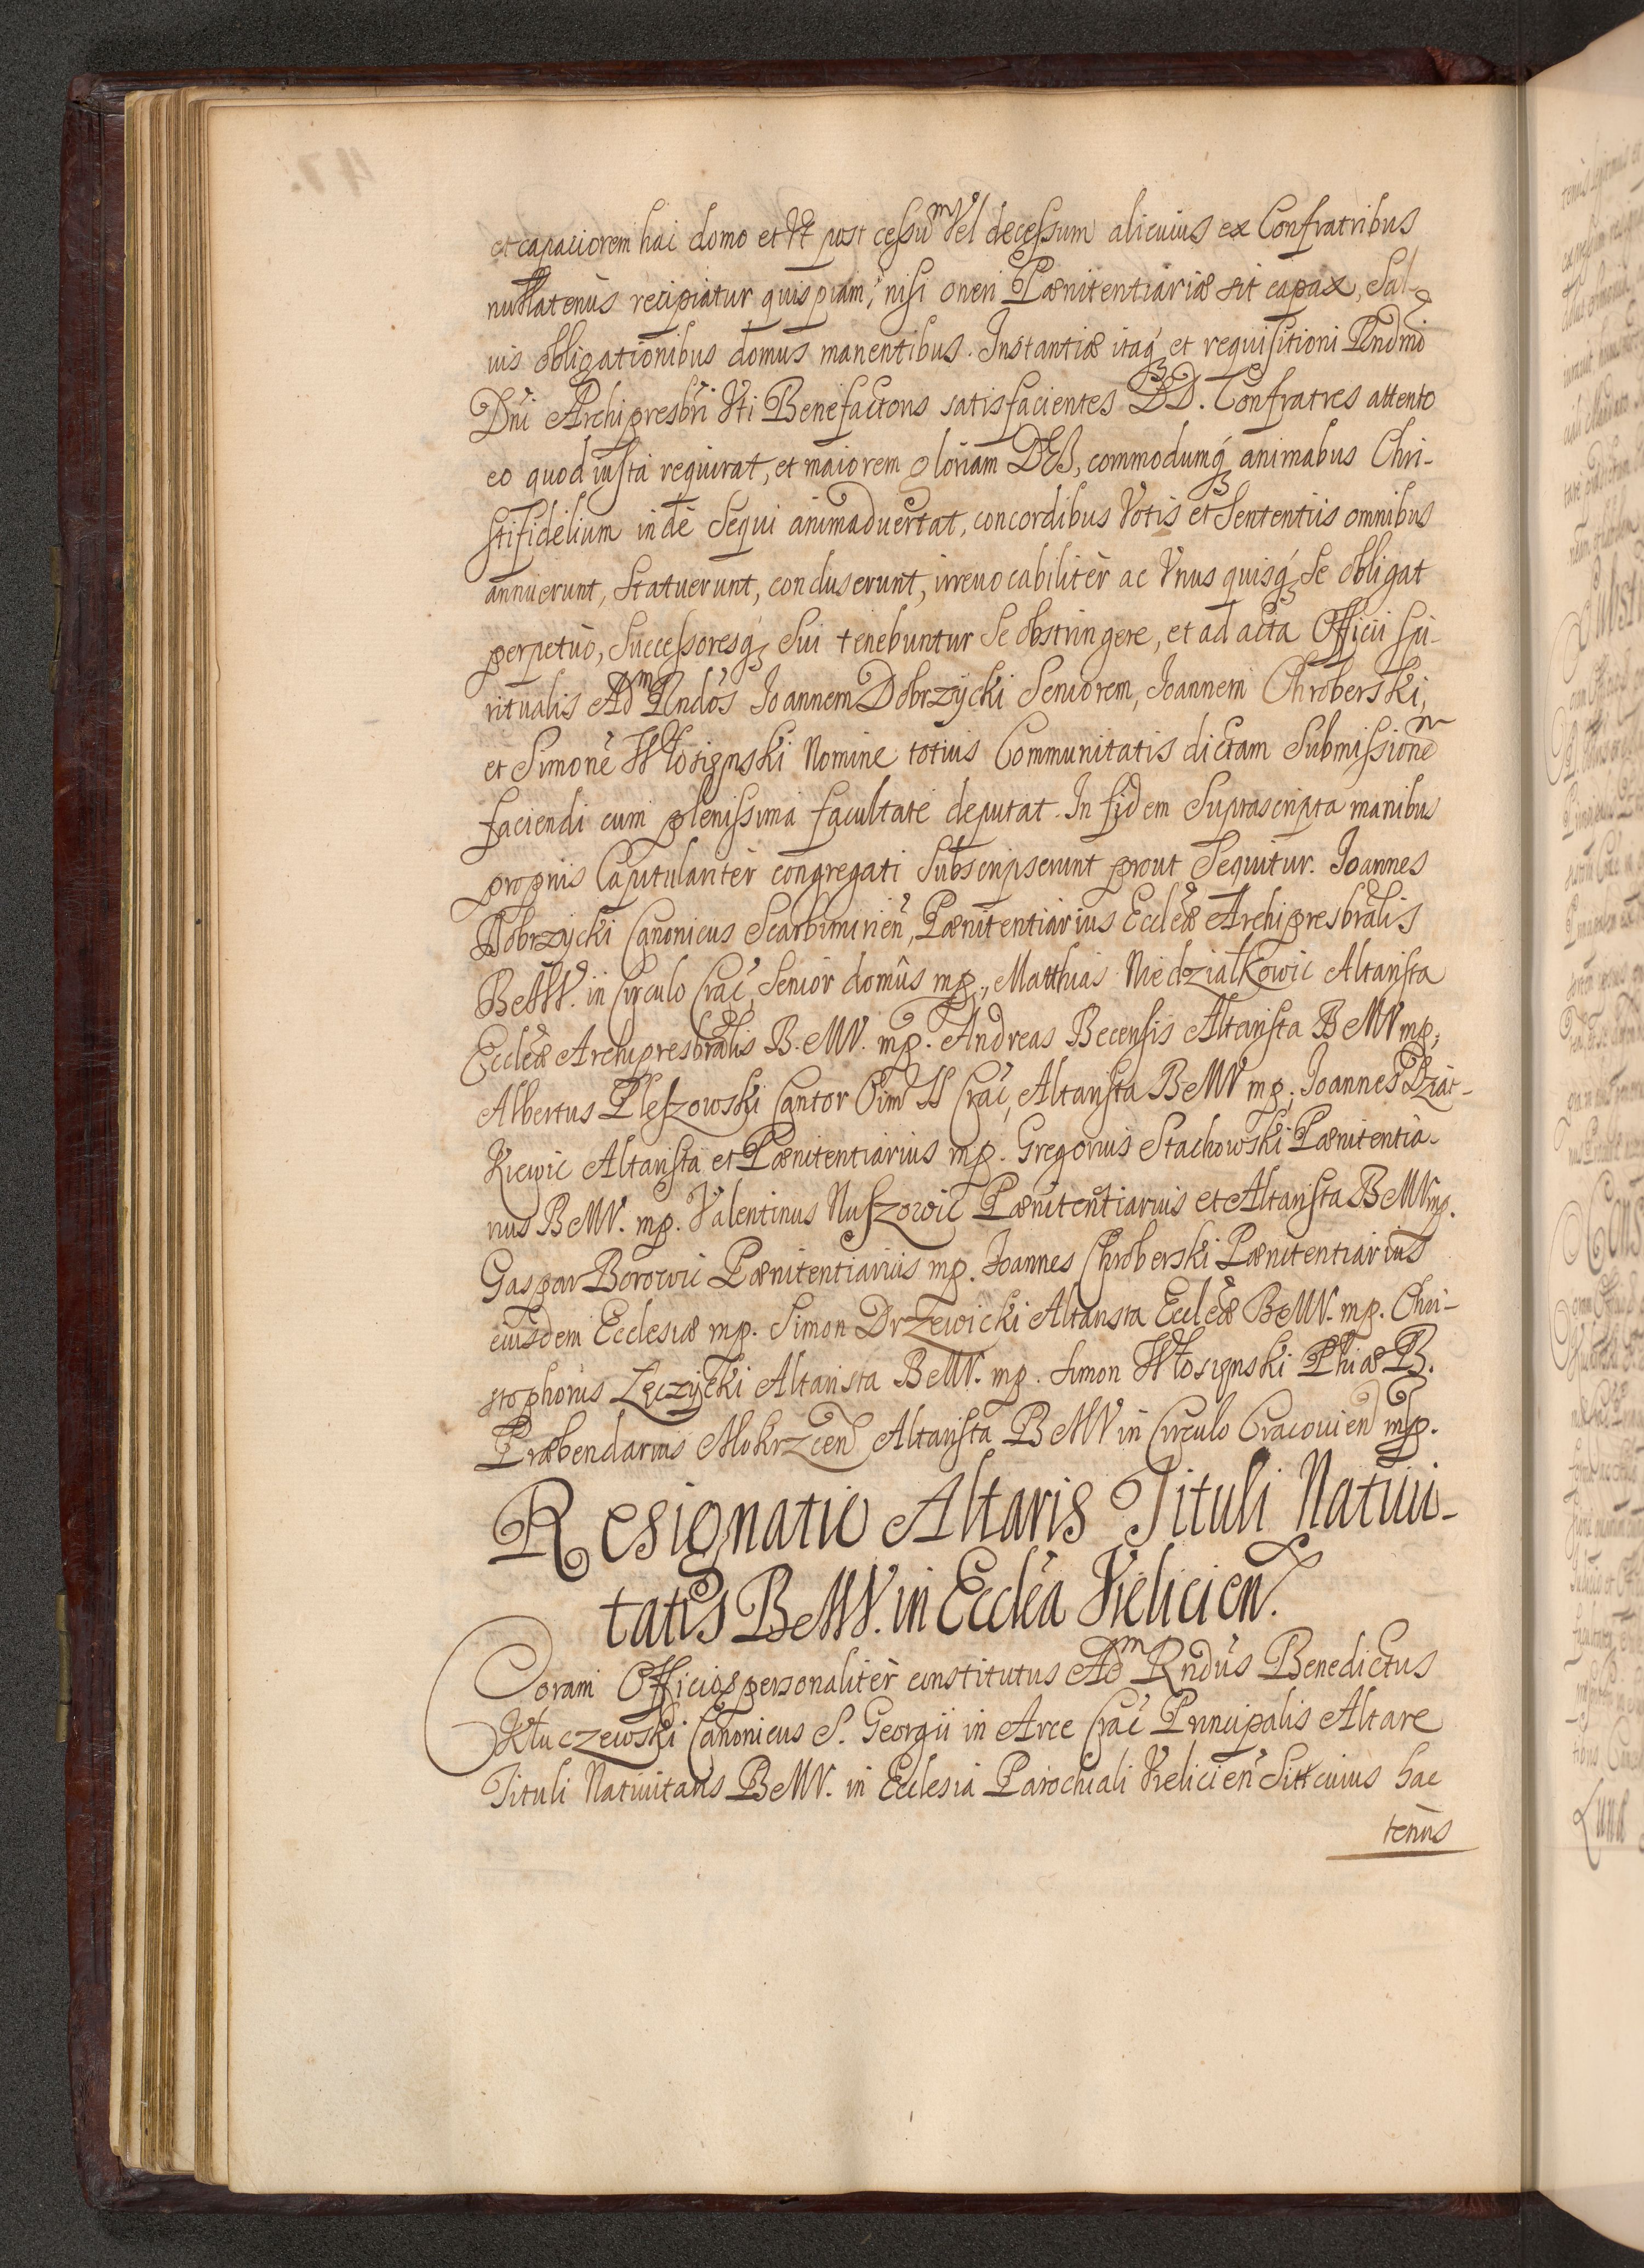 et capaciorem hac domo et Vt post cessũ Vel decessum alicuius ex Confratribus
nullatenùs recipiatur quispiam, nisi oneri Pœnitentiariæ sit capax, Sal-
uis obligationibus domus manentibus. Instantiæ itaq; et requisitioni Rndmi
Dni Archipresbri Vti Benefactoris satisfacientes DD. Confratres attento
eo quod iusta requirat, et maiorem gloriam DEI, commodumq; animabus Chri-
stifidelium inde Sequi animaduertat, concordibus Votis et Sententiis omnibus
annuerunt, Statuerunt, concluserunt, irreuocabilitèr ac Vnus quisq; Se obligat
perpetuò, Successoresq; Sui tenebuntur Se obstringere, et ad acta Officii Spi-
ritualis Adm Rndos Ioannem Dobrzycki Seniorem, Ioannem Chroberski,
et Simonẽ Włosignski Nomine totius Communitatis dictam Submissionem
faciendi cum plenissima facultate deputat. In fidem Suprascripta manibus
propriis Capitularitèr congregati Subscripserunt prout Sequitur. Ioannes
Dobrzycki Canonicus Scarbimirien, Pœnitentiarius Ecclæ Archipresbralis
BMV. in Circulo Crac, Senior domûs mp., Matthias Niedzialkowic Altarista
Ecclæ Archipresbralis B.MV. mp. Andreas Becensis Altarista BMV mp,
Albertus Pleszowski Cantor Oim SS Crac, Altarista BMV mp; Ioannes Dziat-
kiewic Altarista et Pœnitentiarius mp. Gregorius Stachowski Pœnitentia-
rius BMV. mp. Valentinus Nuszowic Pœnitentiarius et Altarista BMV mp.
Gaspar Borowic Pœnitentiarius mp. Ioannes Chroberski Pœnitentiarius
eiusdem Ecclesiæ mp. Simon Drzewicki Altarista Ecclæ BMV. mp. Chri-
stophorus Zęczycki Altarista BMV. mp. Simon Włosignski Phiæ B.
Præbendarius Mokrzcen Altarista BMV in Circulo Cracouien mp.
Resignatio Altaris Tituli Natiui-
tatis BMV. in Eccla Vielicien.
Coram Officio personalitèr constitutus Adm Rndus Benedictus
Kłuczewski Canonicus S. Georgii in Arce Crac Principalis Altare
Tituli Natiuitatis BMV. in Ecclesia Parochiali Vielicien Siti cuius hac
tenùs